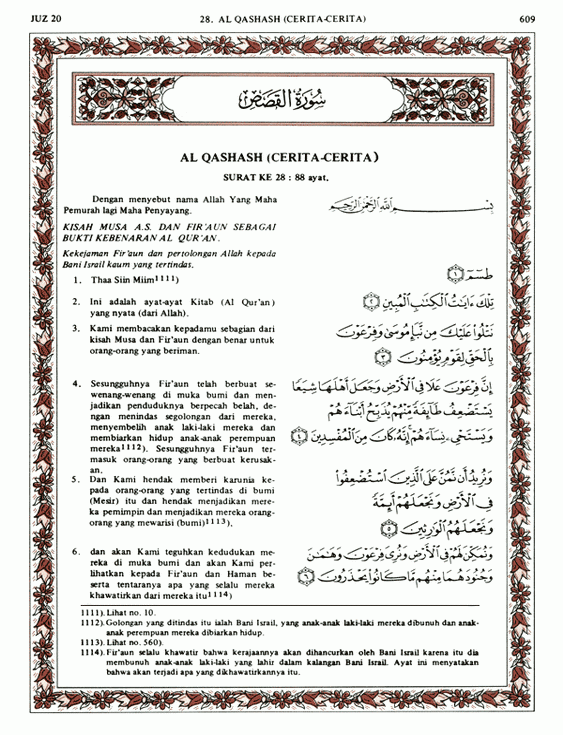 JUZ 20
28. AL QASHASH (CERITA-CERITA)
609
سُورَةُ القَصَصِ
AL QASHASH (CERITA-CERITA)
SURAT KE 28 : 88 ayat.
Dengan menyebut nama Allah Yang Maha
Pemurah lagi Maha Penyayang.
بِسْمِ اللَّهِ الرَّحْمَٰنِ الرَّحِيمِ
KISAH MUSA A.S. DAN FIR'AUN SEBAGAI
BUKTI KEBENARAN AL QUR'AN.
Kekejaman Fir'aun dan pertolongan Allah kepada
Bani Israil kaum yang tertindas.
1. Thaa Siin Miim1111)
طسٓمٓ ۝١
2. Ini adalah ayat-ayat Kitab (Al Qur'an)
yang nyata (dari Allah).
تِلْكَ ءَايَٰتُ الْكِتَٰبِ الْمُبِينِ ۝٢
3. Kami membacakan kepadamu sebagian dari
kisah Musa dan Fir'aun dengan benar untuk
orang-orang yang beriman.
نَتْلُوا عَلَيْكَ مِن نَّبَإِ مُوسَىٰ وَفِرْعَوْنَ
بِالْحَقِّ لِقَوْمٍ يُؤْمِنُونَ ۝٣
4. Sesungguhnya Fir'aun telah berbuat se-
wenang-wenang di muka bumi dan men-
jadikan penduduknya berpecah belah, de-
ngan menindas segolongan dari mereka,
menyembelih anak laki-laki mereka dan
membiarkan hidup anak-anak perempuan
mereka1112). Sesungguhnya Fir'aun ter-
masuk orang-orang yang berbuat kerusak-
an.
إِنَّ فِرْعَوْنَ عَلَا فِي الْأَرْضِ وَجَعَلَ أَهْلَهَا شِيَعًا
يَسْتَضْعِفُ طَآئِفَةً مِّنْهُمْ يُذَبِّحُ أَبْنَآءَهُمْ
وَيَسْتَحْيِۦ نِسَآءَهُمْ إِنَّهُۥ كَانَ مِنَ الْمُفْسِدِينَ ۝٤
5. Dan Kami hendak memberi karunia ke-
pada orang-orang yang tertindas di bumi
(Mesir) itu dan hendak menjadikan mere-
ka pemimpin dan menjadikan mereka orang-
orang yang mewarisi (bumi)1113),
وَنُرِيدُ أَن نَّمُنَّ عَلَى الَّذِينَ اسْتُضْعِفُوا
فِي الْأَرْضِ وَنَجْعَلَهُمْ أَئِمَّةً
وَنَجْعَلَهُمُ الْوَٰرِثِينَ ۝٥
6. dan akan Kami teguhkan kedudukan me-
reka di muka bumi dan akan Kami per-
lihatkan kepada Fir'aun dan Haman be-
serta tentaranya apa yang selalu mereka
khawatirkan dari mereka itu1114)
وَنُمَكِّنَ لَهُمْ فِي الْأَرْضِ وَنُرِيَ فِرْعَوْنَ وَهَٰمَٰنَ
وَجُنُودَهُمَا مِنْهُم مَّا كَانُوا يَحْذَرُونَ ۝٦
1111). Lihat no. 10.
1112). Golongan yang ditindas itu ialah Bani Israil, yang anak-anak laki-laki mereka dibunuh dan anak-
anak perempuan mereka dibiarkan hidup.
1113). Lihat no. 560).
1114). Fir'aun selalu khawatir bahwa kerajaannya akan dihancurkan oleh Bani Israil karena itu dia
membunuh anak-anak laki-laki yang lahir dalam kalangan Bani Israil. Ayat ini menyatakan
bahwa akan terjadi apa yang dikhawatirkannya itu.